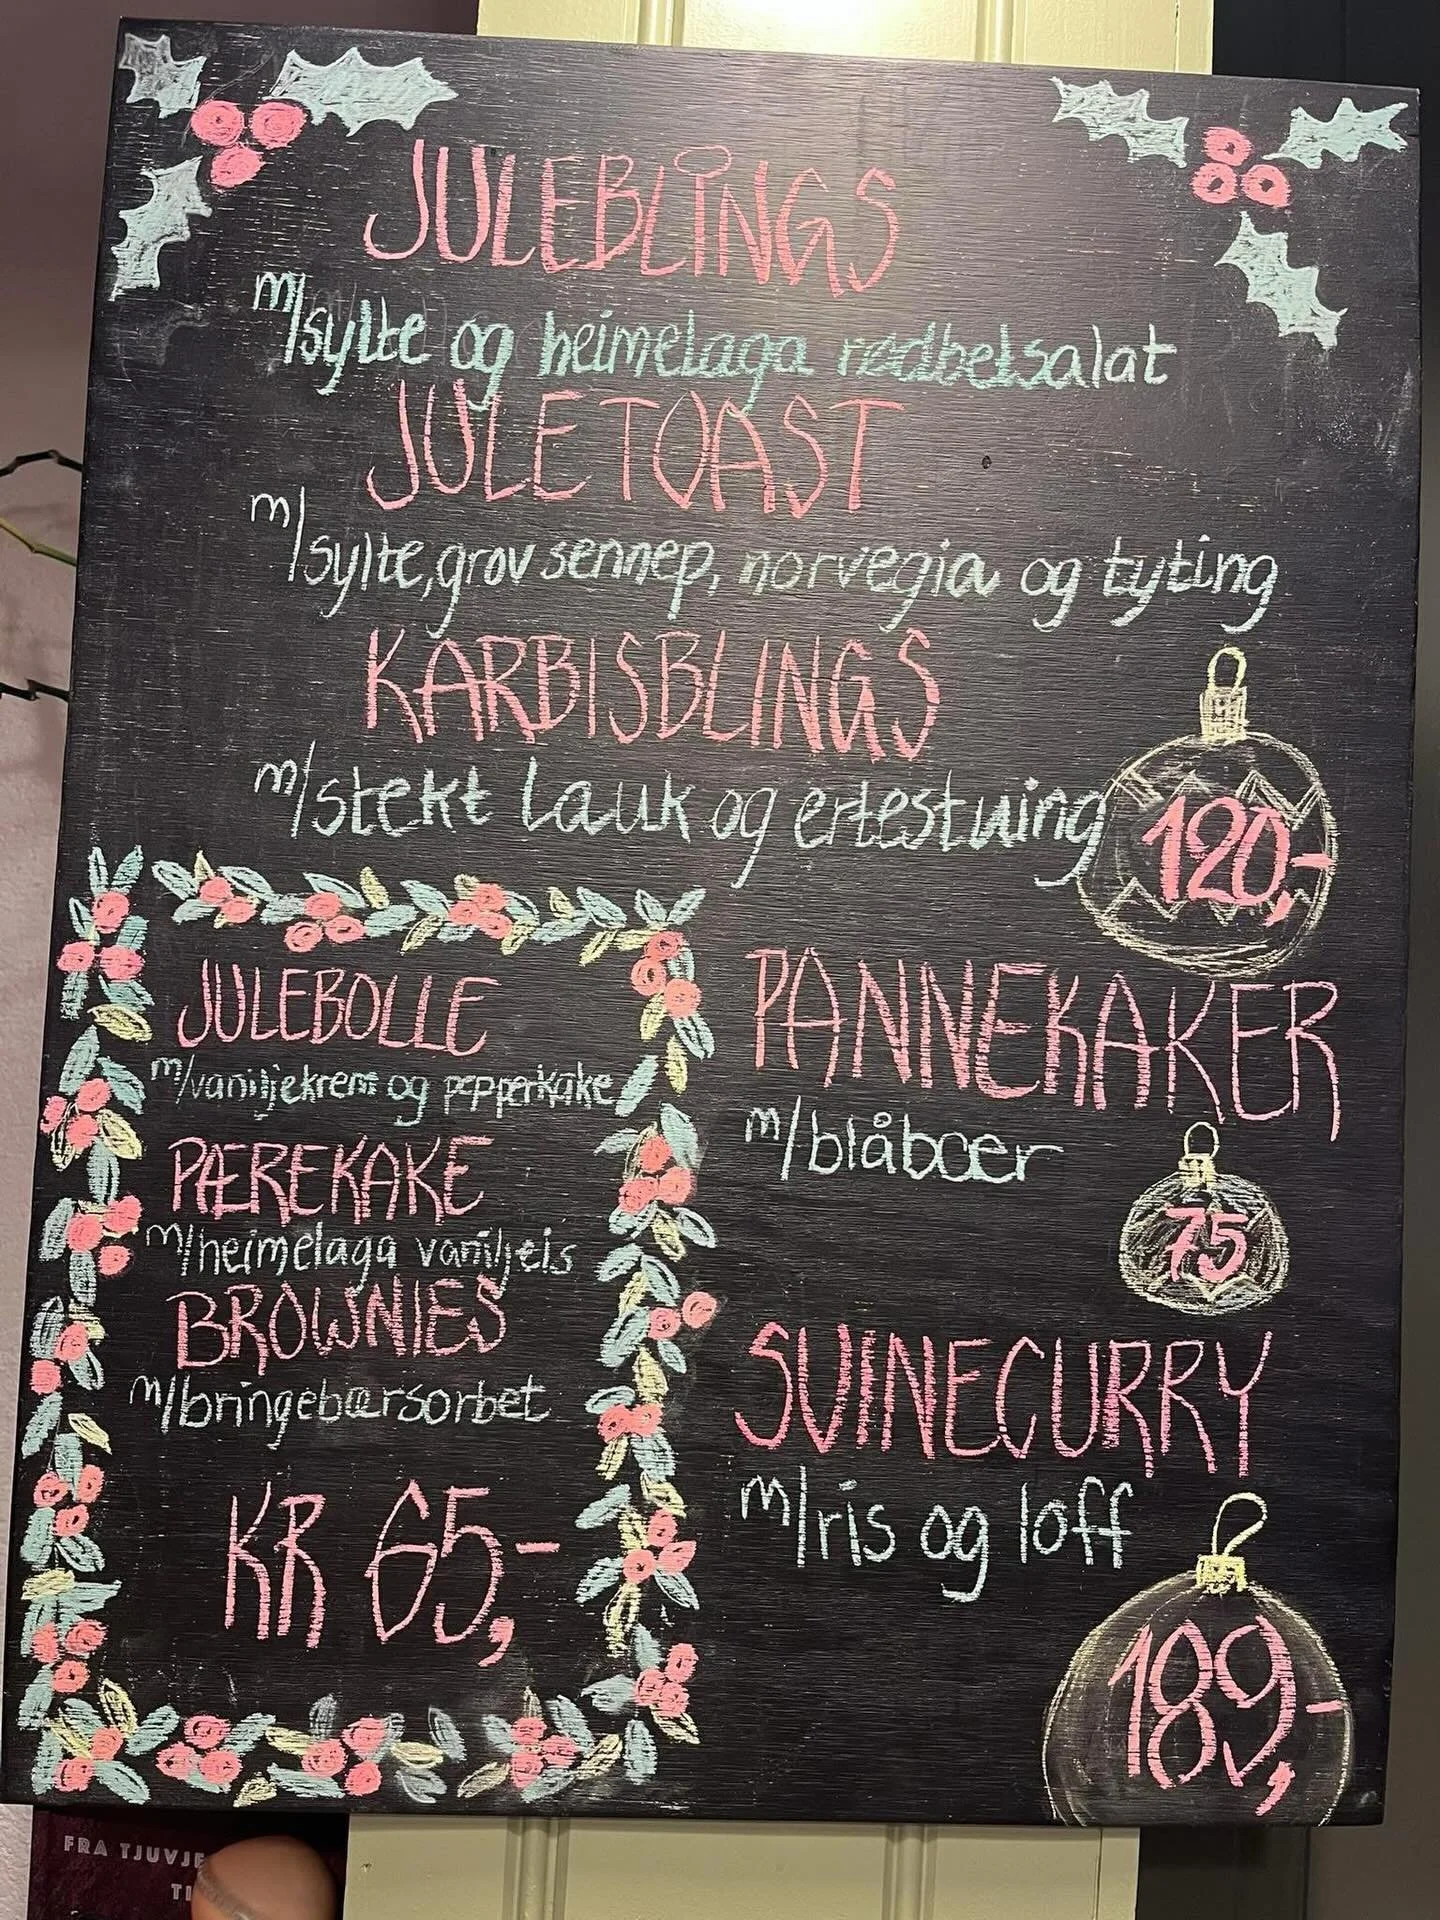 JULEBLINGS
m/sylte og heimelaga rødbetsalat
JULETOAST
m/sylte, grov sennep, norvegia og tyting
KARBISBLINGS
m/stekt lauk og ertestuing
120,-
JULEBOLLE
m/vaniljekrem og pepperkake
PÆREKAKE
m/heimelaga vaniljeis
BROWNIES
m/bringebærsorbet
KR 65,-
PANNEKAKER
m/blåbær
75
SVINECURRY
m/ris og loff
189,-
FRA TJUVJE
TI